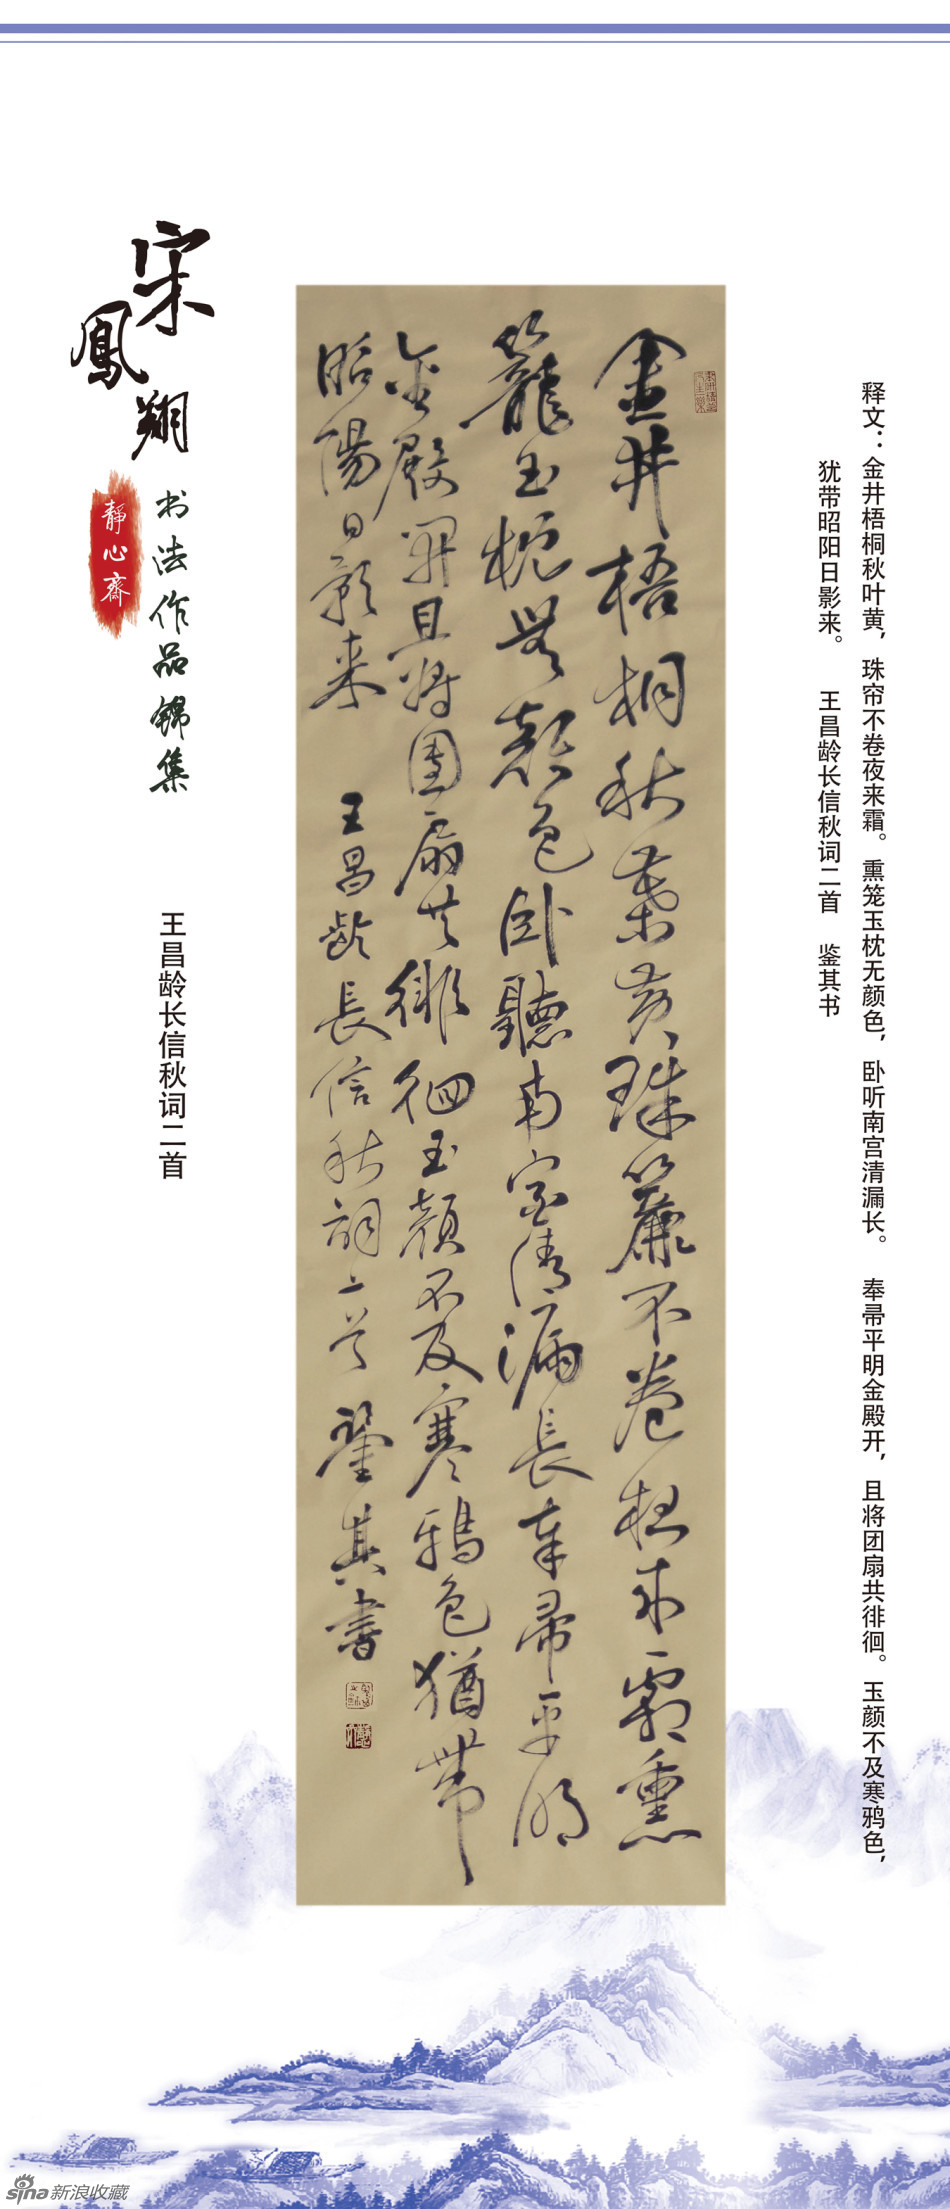 释文：金井梧桐秋叶黄，珠帘不卷夜来霜。熏笼玉枕无颜色，卧听南宫清漏长。 奉帚平明金殿开，且将团扇共徘徊。玉颜不及寒鸦色，
犹带昭阳日影来。 王昌龄长信秋词二首 鉴其书
金井梧桐秋葉黄珠簾不卷夜来霜熏
籠玉枕无颜色卧聽南宫清漏長奉帚平明
金殿開且将團扇共徘徊玉颜不及寒鸦色猶带
昭陽日影来 王昌齡長信秋詞二首 鉴其書
宋鳳翔
书法作品锦集
靜心齋
王昌龄长信秋词二首
sina新浪收藏